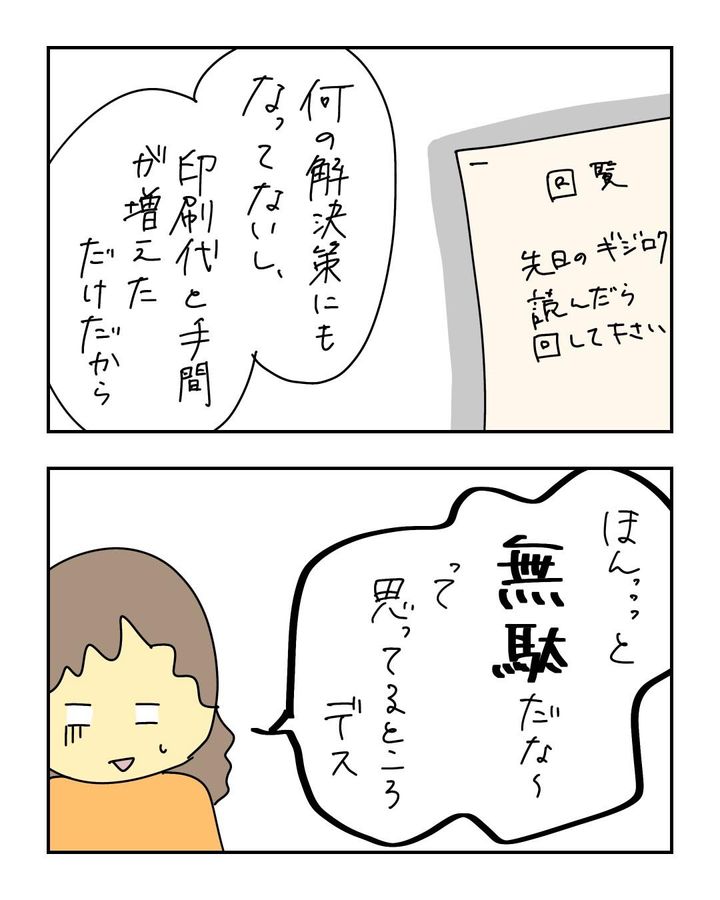 何の解決策にも
なってないし、
印刷代と手間
が増えた
だけだから
回覧
先日のギジロク
読んだら
回して下さい
ほんっっっと
無駄だな〜
って
思ってるところ
デス